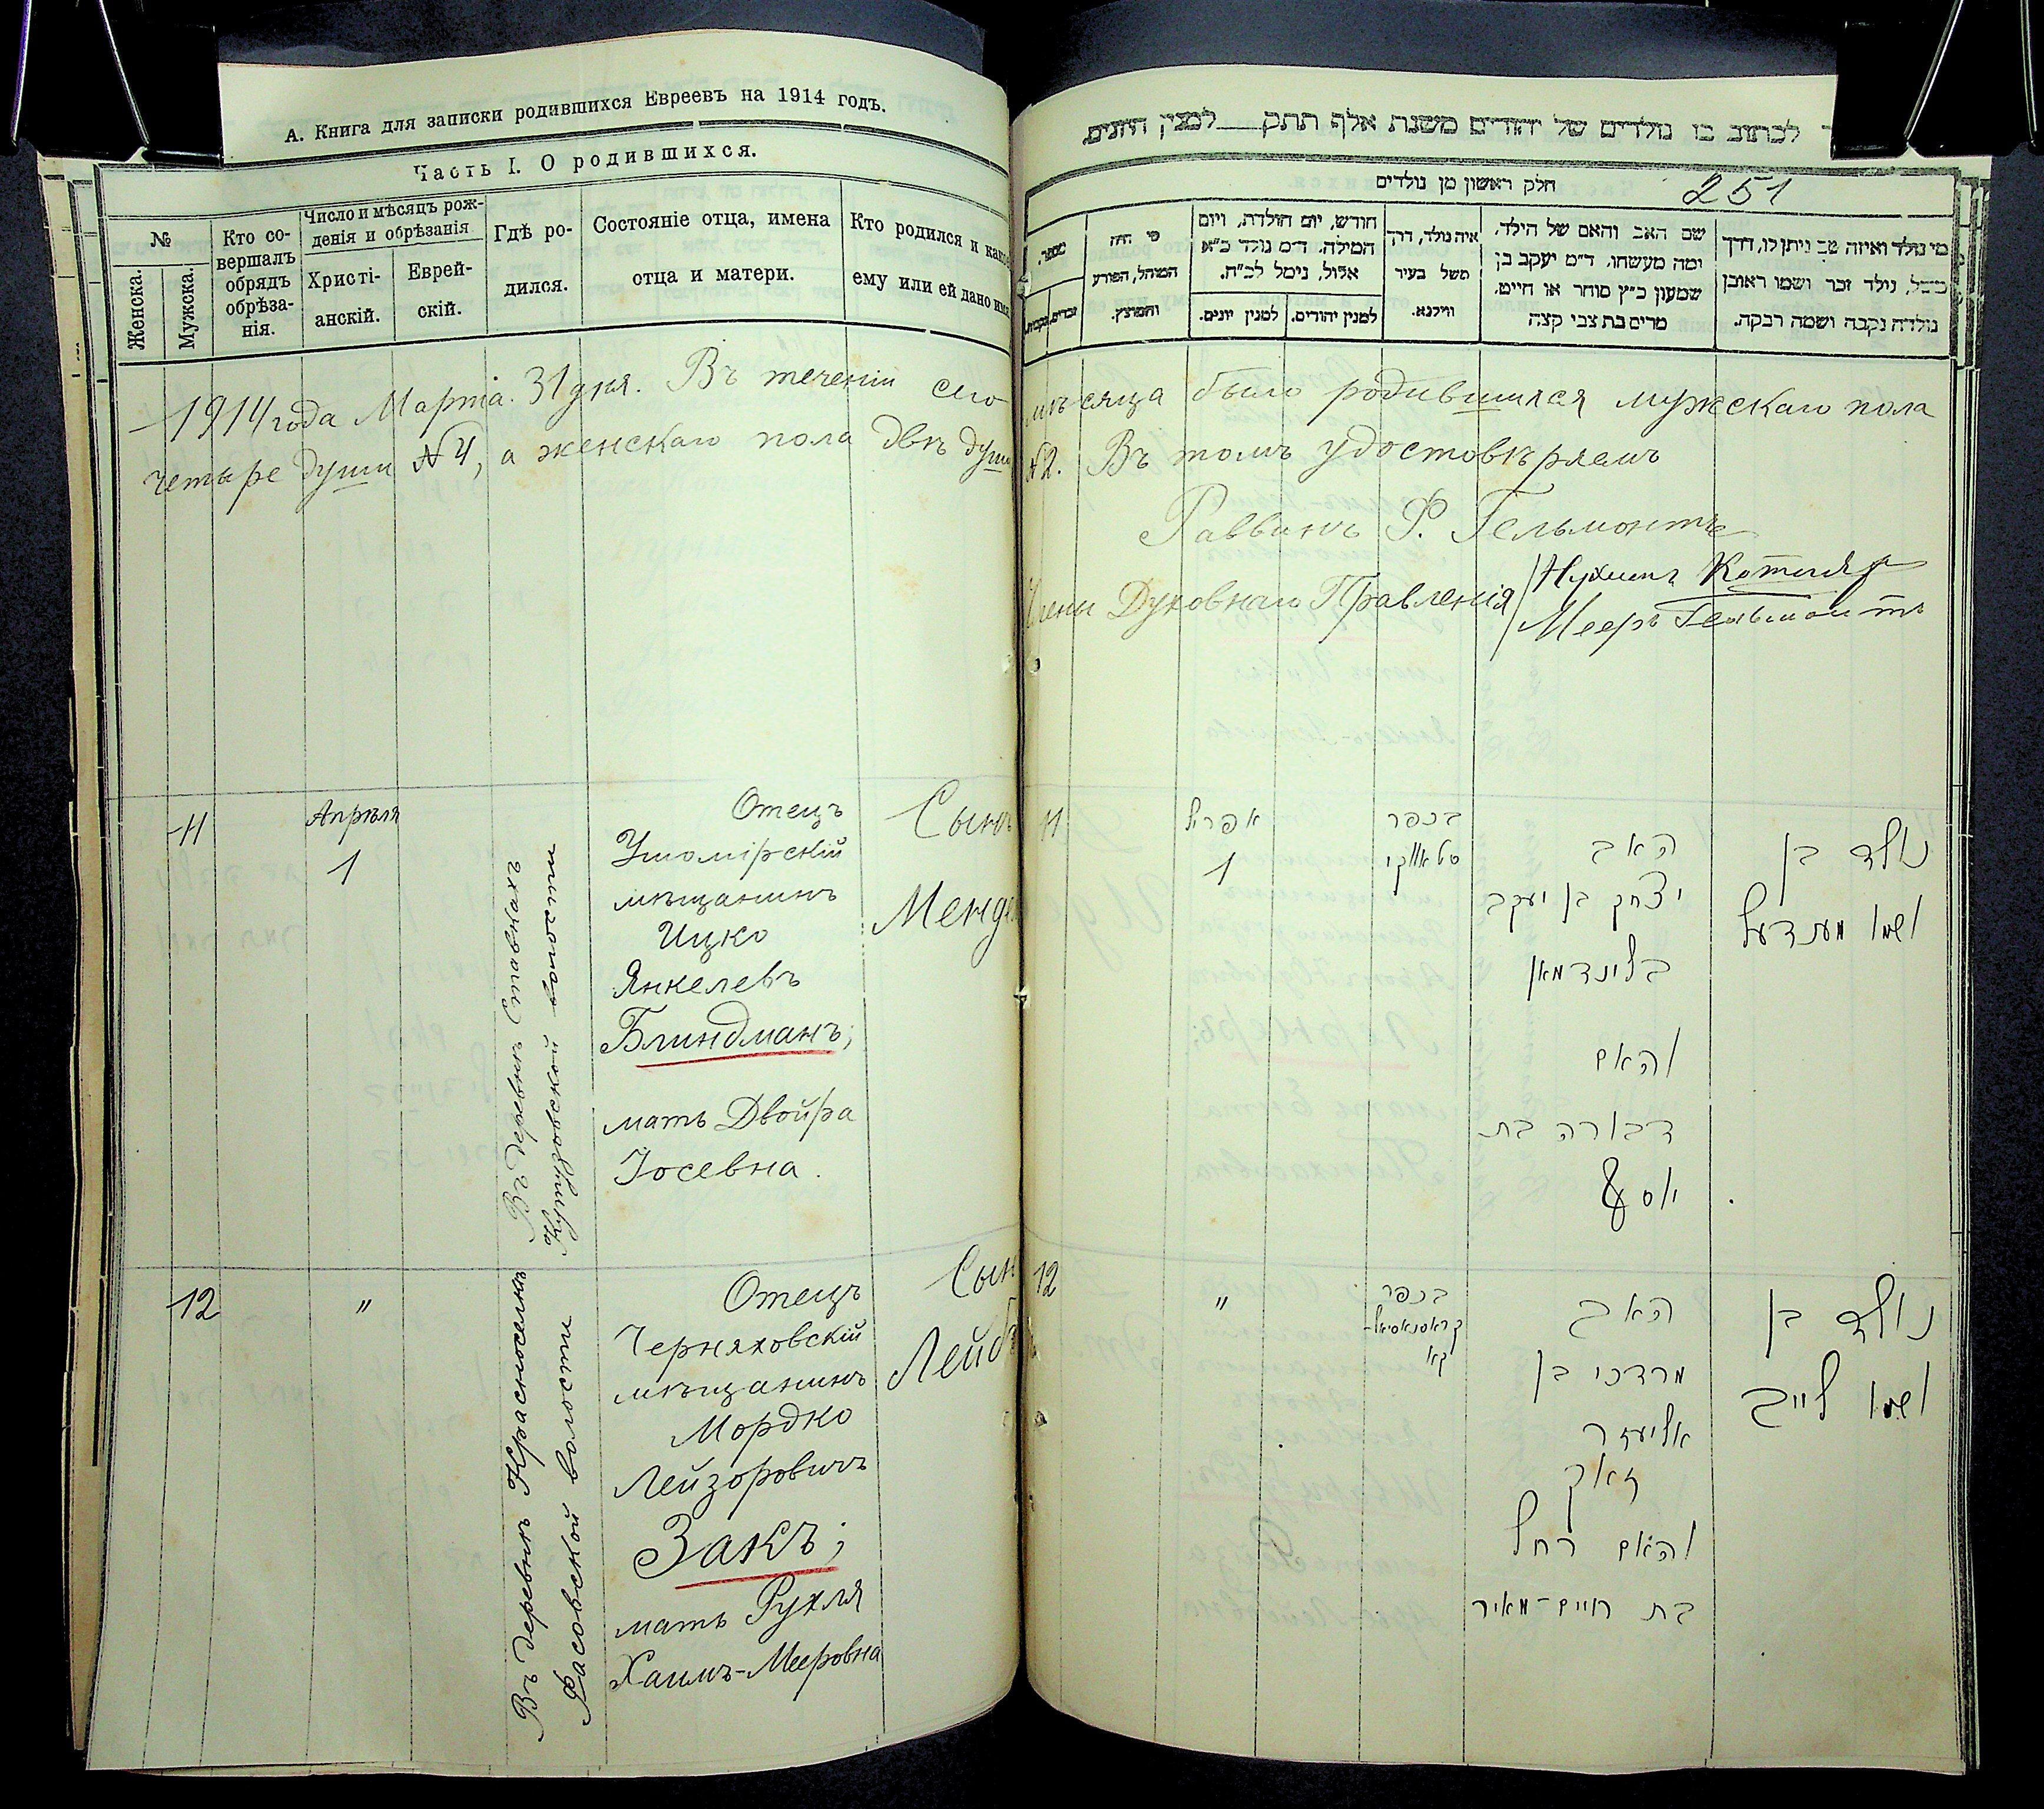 А. Книга для записки родившихся Евреевъ на 1914 годъ.
Часть I. О родившихся.
№
Женска.
Мужска.
Кто со-
вершалъ
обрядъ
обрѣза-
нія.
Число и мѣсяцъ рож-
денія и обрѣзанія
Христі-
анскій.
Еврей-
скій.
Гдѣ ро-
дился.
Состояніе отца, имена
отца и матери.
Кто родился и како
ему или ей дано имя
לכתוב בו נולדים של יהודים משנת אלף תתק למנין היונים
251
חלק ראשון מן נולדים
מספר.
זכרים.
נקבות.
מי היה
המוהל, הפורע
והמוצץ.
חודש, יום הולדת, ויום
המילה. ד״מ נולד כ״א
אלול, נימל לכ״ח.
למנין יהודים.
למנין יונים.
איה נולד, דרך
משל בעיר
ווילנא.
שם האב והאם של הילד.
ומה מעשהו. ד״מ יעקב בן
שמעון כ״ץ סוחר או חייט.
מרים בת צבי קצה
מי נולד ואיזה שם ניתן לו, דרך
משל, נולד זכר ושמו ראובן
נולדה נקבה ושמה רבקה.
1914 года Марта 31 дня. Въ теченіи сего мѣсяца было родившихся мужскаго пола
четыре души №4, а женскаго пола двѣ души №2. Въ томъ удостовѣряемъ
Раввинъ Ф. Гельмонтъ
Члены Духовнаго Правленія
Нухимъ Котляр
Мееръ Гельмонтъ
11
Апрѣля
1
Въ деревнѣ Ставкахъ
Кутузовской волости
Отецъ
Ушомірскій
мѣщанинъ
Ицко
Янкелевъ
Блиндманъ;
мать Двойра
Іосевна.
Сынъ
Менде
11
אפריל
1
בכפר
סטאווקי
האב
יצחק בן יעקב
בלינדמאן
והאם
דבורה בת
יוסף
נולד בן
ושמו מענדעל
12
"
Въ деревнѣ Красноселкѣ
Фасовской волости
Отецъ
Черняховскій
мѣщанинъ
Мордко
Лейзоровичъ
Закъ;
мать Рухля
Хаимъ-Мееровна
Сын
Лейб
12
"
בכפר
קראסנאסיאל-
קא
האב
מרדכי בן
אליעזר
זאק
והאם רחל
בת חיים-מאיר
נולד בן
ושמו לייב